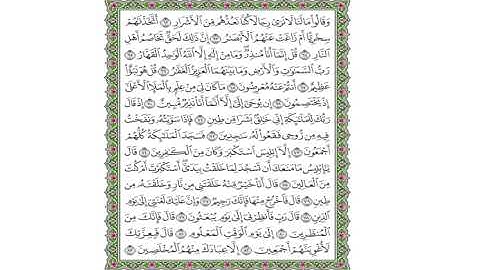 وَقَالُوا۟ مَا لَنَا لَا نَرَىٰ رِجَالًا كُنَّا نَعُدُّهُم مِّنَ ٱلْأَشْرَارِ ٦٢ أَتَّخَذْنَٰهُمْ
سِخْرِيًّا أَمْ زَاغَتْ عَنْهُمُ ٱلْأَبْصَٰرُ ٦٣ إِنَّ ذَٰلِكَ لَحَقٌّ تَخَاصُمُ أَهْلِ
ٱلنَّارِ ٦٤ قُلْ إِنَّمَآ أَنَا۠ مُنذِرٌ وَمَا مِنْ إِلَٰهٍ إِلَّا ٱللَّهُ ٱلْوَٰحِدُ ٱلْقَهَّارُ ٦٥
رَبُّ ٱلسَّمَٰوَٰتِ وَٱلْأَرْضِ وَمَا بَيْنَهُمَا ٱلْعَزِيزُ ٱلْغَفَّٰرُ ٦٦ قُلْ هُوَ نَبَؤٌا۟
عَظِيمٌ ٦٧ أَنتُمْ عَنْهُ مُعْرِضُونَ ٦٨ مَا كَانَ لِىَ مِنْ عِلْمٍۭ بِٱلْمَلَإِ ٱلْأَعْلَىٰٓ
إِذْ يَخْتَصِمُونَ ٦٩ إِن يُوحَىٰٓ إِلَىَّ إِلَّآ أَنَّمَآ أَنَا۠ نَذِيرٌ مُّبِينٌ ٧٠ إِذْ قَالَ
رَبُّكَ لِلْمَلَٰٓئِكَةِ إِنِّى خَٰلِقٌۢ بَشَرًا مِّن طِينٍ ٧١ فَإِذَا سَوَّيْتُهُۥ وَنَفَخْتُ
فِيهِ مِن رُّوحِى فَقَعُوا۟ لَهُۥ سَٰجِدِينَ ٧٢ فَسَجَدَ ٱلْمَلَٰٓئِكَةُ كُلُّهُمْ
أَجْمَعُونَ ٧٣ إِلَّآ إِبْلِيسَ ٱسْتَكْبَرَ وَكَانَ مِنَ ٱلْكَٰفِرِينَ ٧٤ قَالَ
يَٰٓإِبْلِيسُ مَا مَنَعَكَ أَن تَسْجُدَ لِمَا خَلَقْتُ بِيَدَىَّ أَسْتَكْبَرْتَ أَمْ كُنتَ
مِنَ ٱلْعَالِينَ ٧٥ قَالَ أَنَا۠ خَيْرٌ مِّنْهُ خَلَقْتَنِى مِن نَّارٍ وَخَلَقْتَهُۥ مِن
طِينٍ ٧٦ قَالَ فَٱخْرُجْ مِنْهَا فَإِنَّكَ رَجِيمٌ ٧٧ وَإِنَّ عَلَيْكَ لَعْنَتِىٓ إِلَىٰ يَوْمِ
ٱلدِّينِ ٧٨ قَالَ رَبِّ فَأَنظِرْنِىٓ إِلَىٰ يَوْمِ يُبْعَثُونَ ٧٩ قَالَ فَإِنَّكَ مِنَ
ٱلْمُنظَرِينَ ٨٠ إِلَىٰ يَوْمِ ٱلْوَقْتِ ٱلْمَعْلُومِ ٨١ قَالَ فَبِعِزَّتِكَ
لَأُغْوِيَنَّهُمْ أَجْمَعِينَ ٨٢ إِلَّا عِبَادَكَ مِنْهُمُ ٱلْمُخْلَصِينَ ٨٣